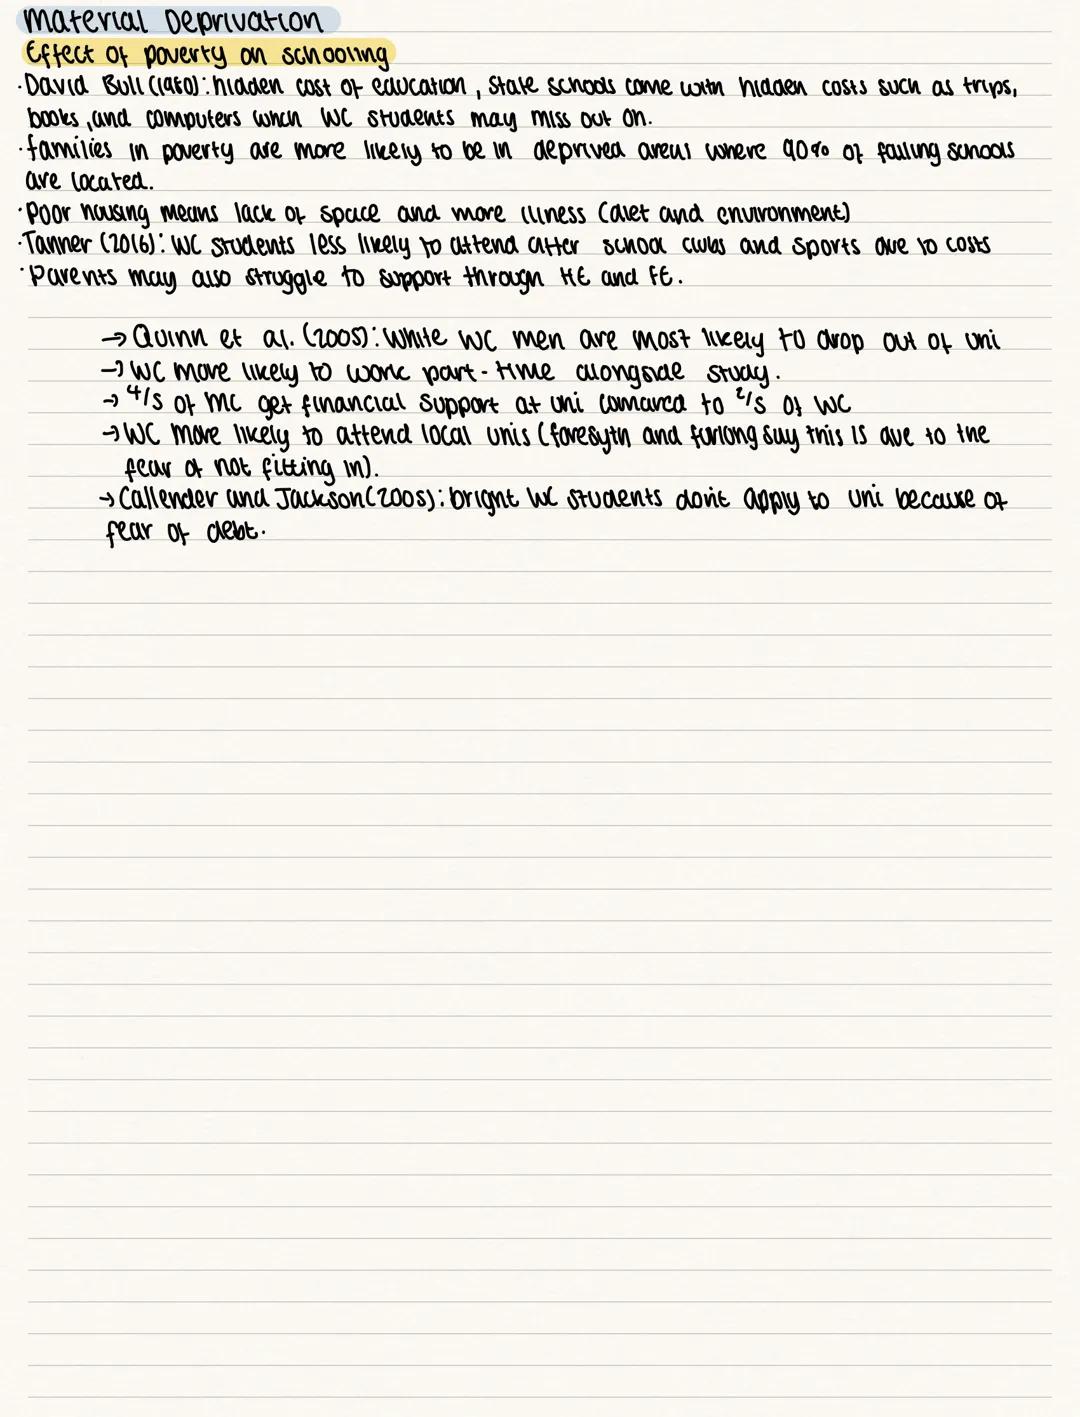 Material Deprivation
Effect of poverty on schooling
· David Bull (1980): hidden cost of education, state schools come with hidden costs such as trips,
books, and computers which WC students may miss out on.
· families in poverty are more likely to be in deprived areas where 90% of failing schools
are located.
· Poor housing means lack of space and more illness (diet and environment)
· Tanner (2016): WC students less likely to attend after school clubs and sports due to costs
· Parents may also struggle to support through HE and FE.
→ Quinn et al. (2005): White WC men are most likely to drop out of uni
→ WC more likely to work part-time alongside study.
→ 4/5 of MC get financial support at uni comared to 2/5 of WC
→ WC more likely to attend local unis (foresyth and furlong say this is due to the
fear of not fitting in).
→ Callender and Jackson (2005): bright WC students don't apply to uni because of
fear of debt.